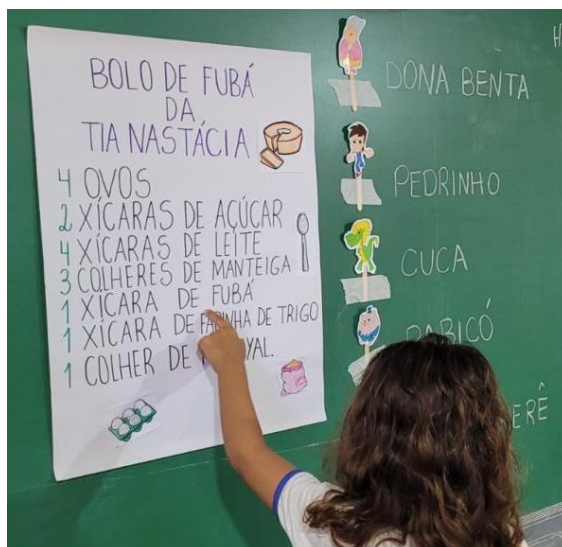 BOLO DE FUBÁ
DA
TIA NASTÁCIA
4 OVOS
2 XÍCARAS DE AÇÚCAR
4 XÍCARAS DE LEITE
3 COLHERES DE MANTEIGA
1 XÍCARA DE FUBÁ
1 XÍCARA DE FARINHA DE TRIGO
1 COLHER DE
DONA BENTA
PEDRINHO
CUCA
RABICÓ